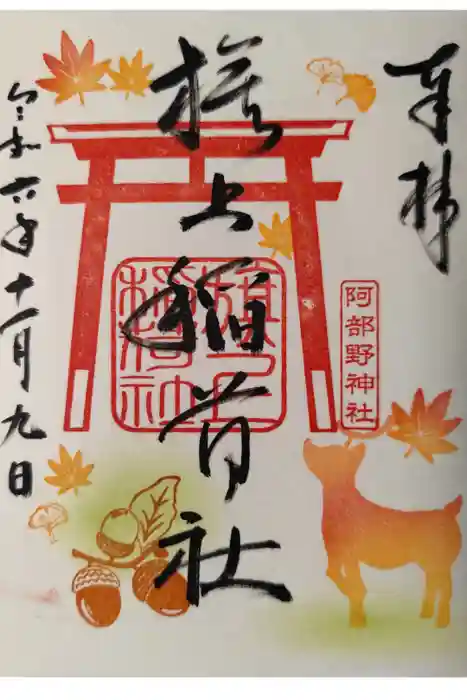 奉拝
阿部野神社
旗上稲荷社
令和六年十一月九日